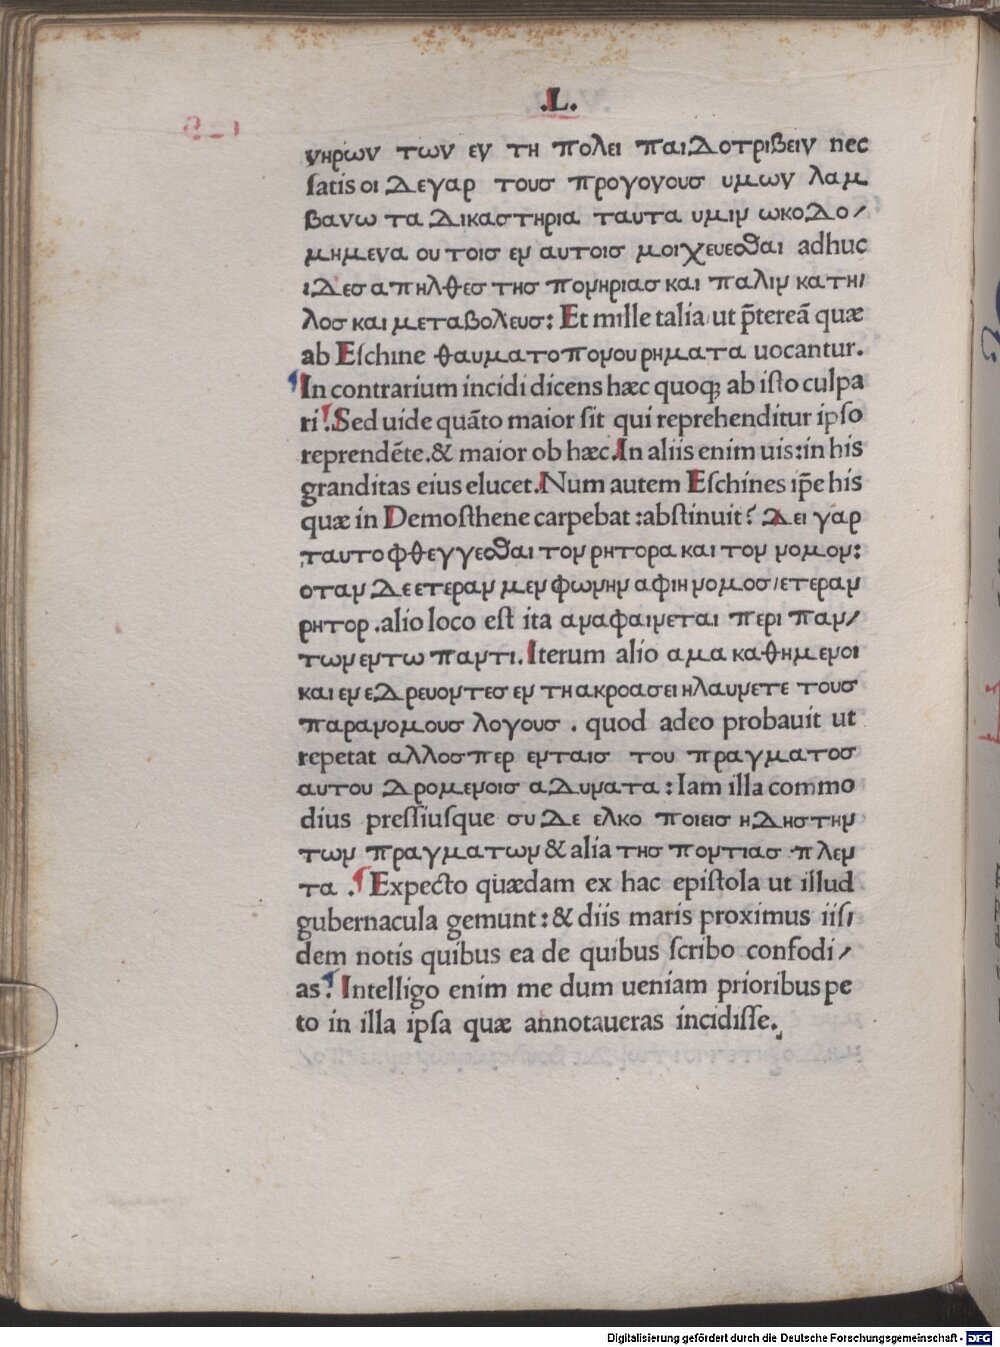 .L.
νηρων των εν τη πολει παιδοτριβειν nec
ſatis οι δεγαρ τουσ προγονουσ υμων λαμ
βανω τα δικαστηρια ταυτα υμιν ωκοδο/
μημενα ουτοισ εν αυτοισ μοιχευεσθαι adhuc
ιδεσ απηλθεσ τησ πονηριασ και παλιν κατηι
λοσ και μεταβολευσ: Et mille talia ut p̄tereā quæ
ab Eſchine θαυματοπονουρηματα uocantur.
In contrarium incidi dicens hæc quoq; ab iſto culpa
ri. Sed uide quāto maior ſit qui reprehenditur ipſo
reprendēte.& maior ob hæc. In aliis enim uis:in his
granditas eius elucet. Num autem Eſchines ip̄e his
quæ in Demoſthene carpebat :abſtinuit? δει γαρ
ταυτο φθεγγεσθαι τον ρητορα και τον νομον:
οταν δε ετεραν μεν φωνην αφιη νομοσ/ετεραν
ρητορ .alio loco eſt ita αναφαινεται περι παν/
των εντω παντι. Iterum alio αμα καθημενοι
και ενεδρευοντεσ εν τη ακροασει ηλαυνετε τουσ
παρανομουσ λογουσ . quod adeo probauit ut
repetat αλλοσπερ ενταισ του πραγματοσ
αυτου δρομενοισ αδυνατα : Iam illa commo
dius preſſiuſque συ δε ελκο ποιεισ ηδηστην
των πραγματων & alia τησ ποντιασ πλεν
τα . Expecto quædam ex hac epiſtola ut illud
gubernacula gemunt:& diis maris proximus iiſ/
dem notis quibus ea de quibus ſcribo confodi/
as? Intelligo enim me dum ueniam prioribus pe
to in illa ipſa quæ annotaueras incidiſſe.
Digitalisierung gefördert durch die Deutsche Forschungsgemeinschaft - DFG